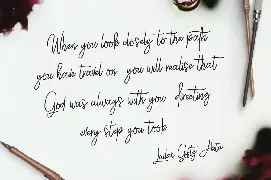 When you look closely to the path
you have travel on you will realise that
God was always with you directing
every step you took